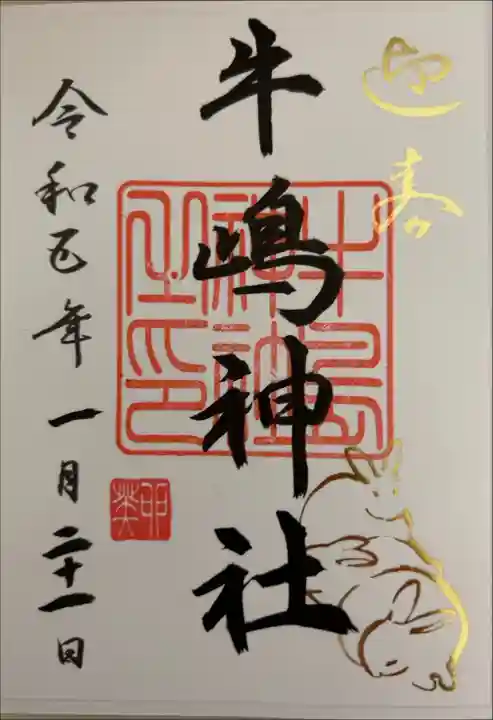 迎春
牛嶋神社
牛嶋神社之印
令和五年一月二十一日